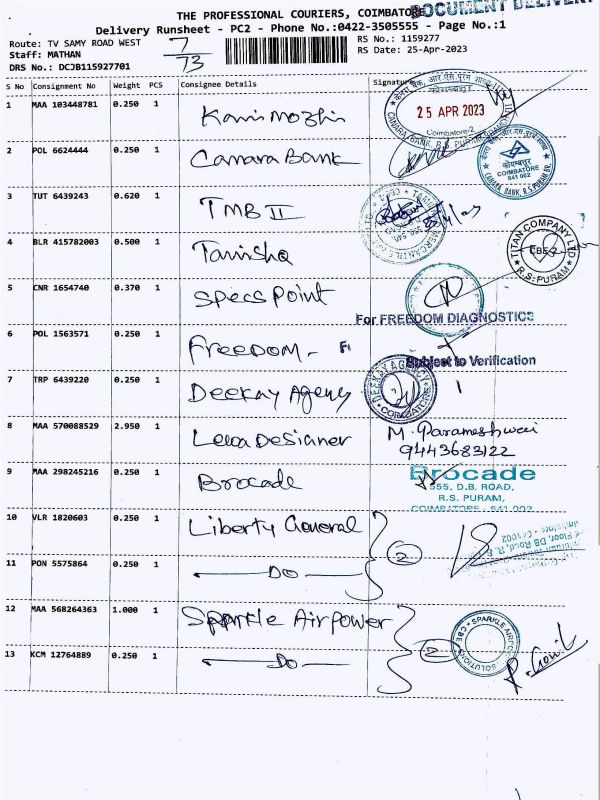 THE PROFESSIONAL COURIERS, COIMBATORE
DOCUMENT DELIVERY
Delivery Runsheet - PC2 - Phone No.:0422-3505555 - Page No.:1
Route: TV SAMY ROAD WEST
7/73
RS No.: 1159277
Staff: MATHAN
RS Date: 25-Apr-2023
DRS No.: DCJB115927701
S No Consignment No Weight PCS Consignee Details Signature
1 MAA 103448781 0.250 1 Kanimozhi
25 APR 2023
Coimbatore-2
CANARA BANK, R.S. PURAM
2 POL 6624444 0.250 1 Canara Bank
COIMBATORE
641 002
CANARA BANK, R.S.PURAM BR.
3 TUT 6439243 0.620 1 TMB II
4 BLR 415782003 0.500 1 Tanishq
TITAN COMPANY LTD
CBE-2
R.S. PURAM
5 CNR 1654740 0.370 1 Specs Point
For FREEDOM DIAGNOSTICS
6 POL 1563571 0.250 1 Freedom -
Subject to Verification
7 TRP 6439220 0.250 1 Deekay Agency
DEEKAY AGENCY
COIMBATORE
8 MAA 570088529 2.950 1 Leoa Desianer
M. Parameshwari
9443683122
9 MAA 298245216 0.250 1 Brocade
Brocade
555, D.B. ROAD,
R.S. PURAM,
COIMBATORE - 641 002
10 VLR 1820603 0.250 1 Liberty General
2
11 PON 5575864 0.250 1 DO
12 MAA 568264363 1.000 1 Sparkle Airpower
2
SPARKLE AIRPOWER SOLUTIONS
CBE
13 KCM 12764889 0.250 1 DO